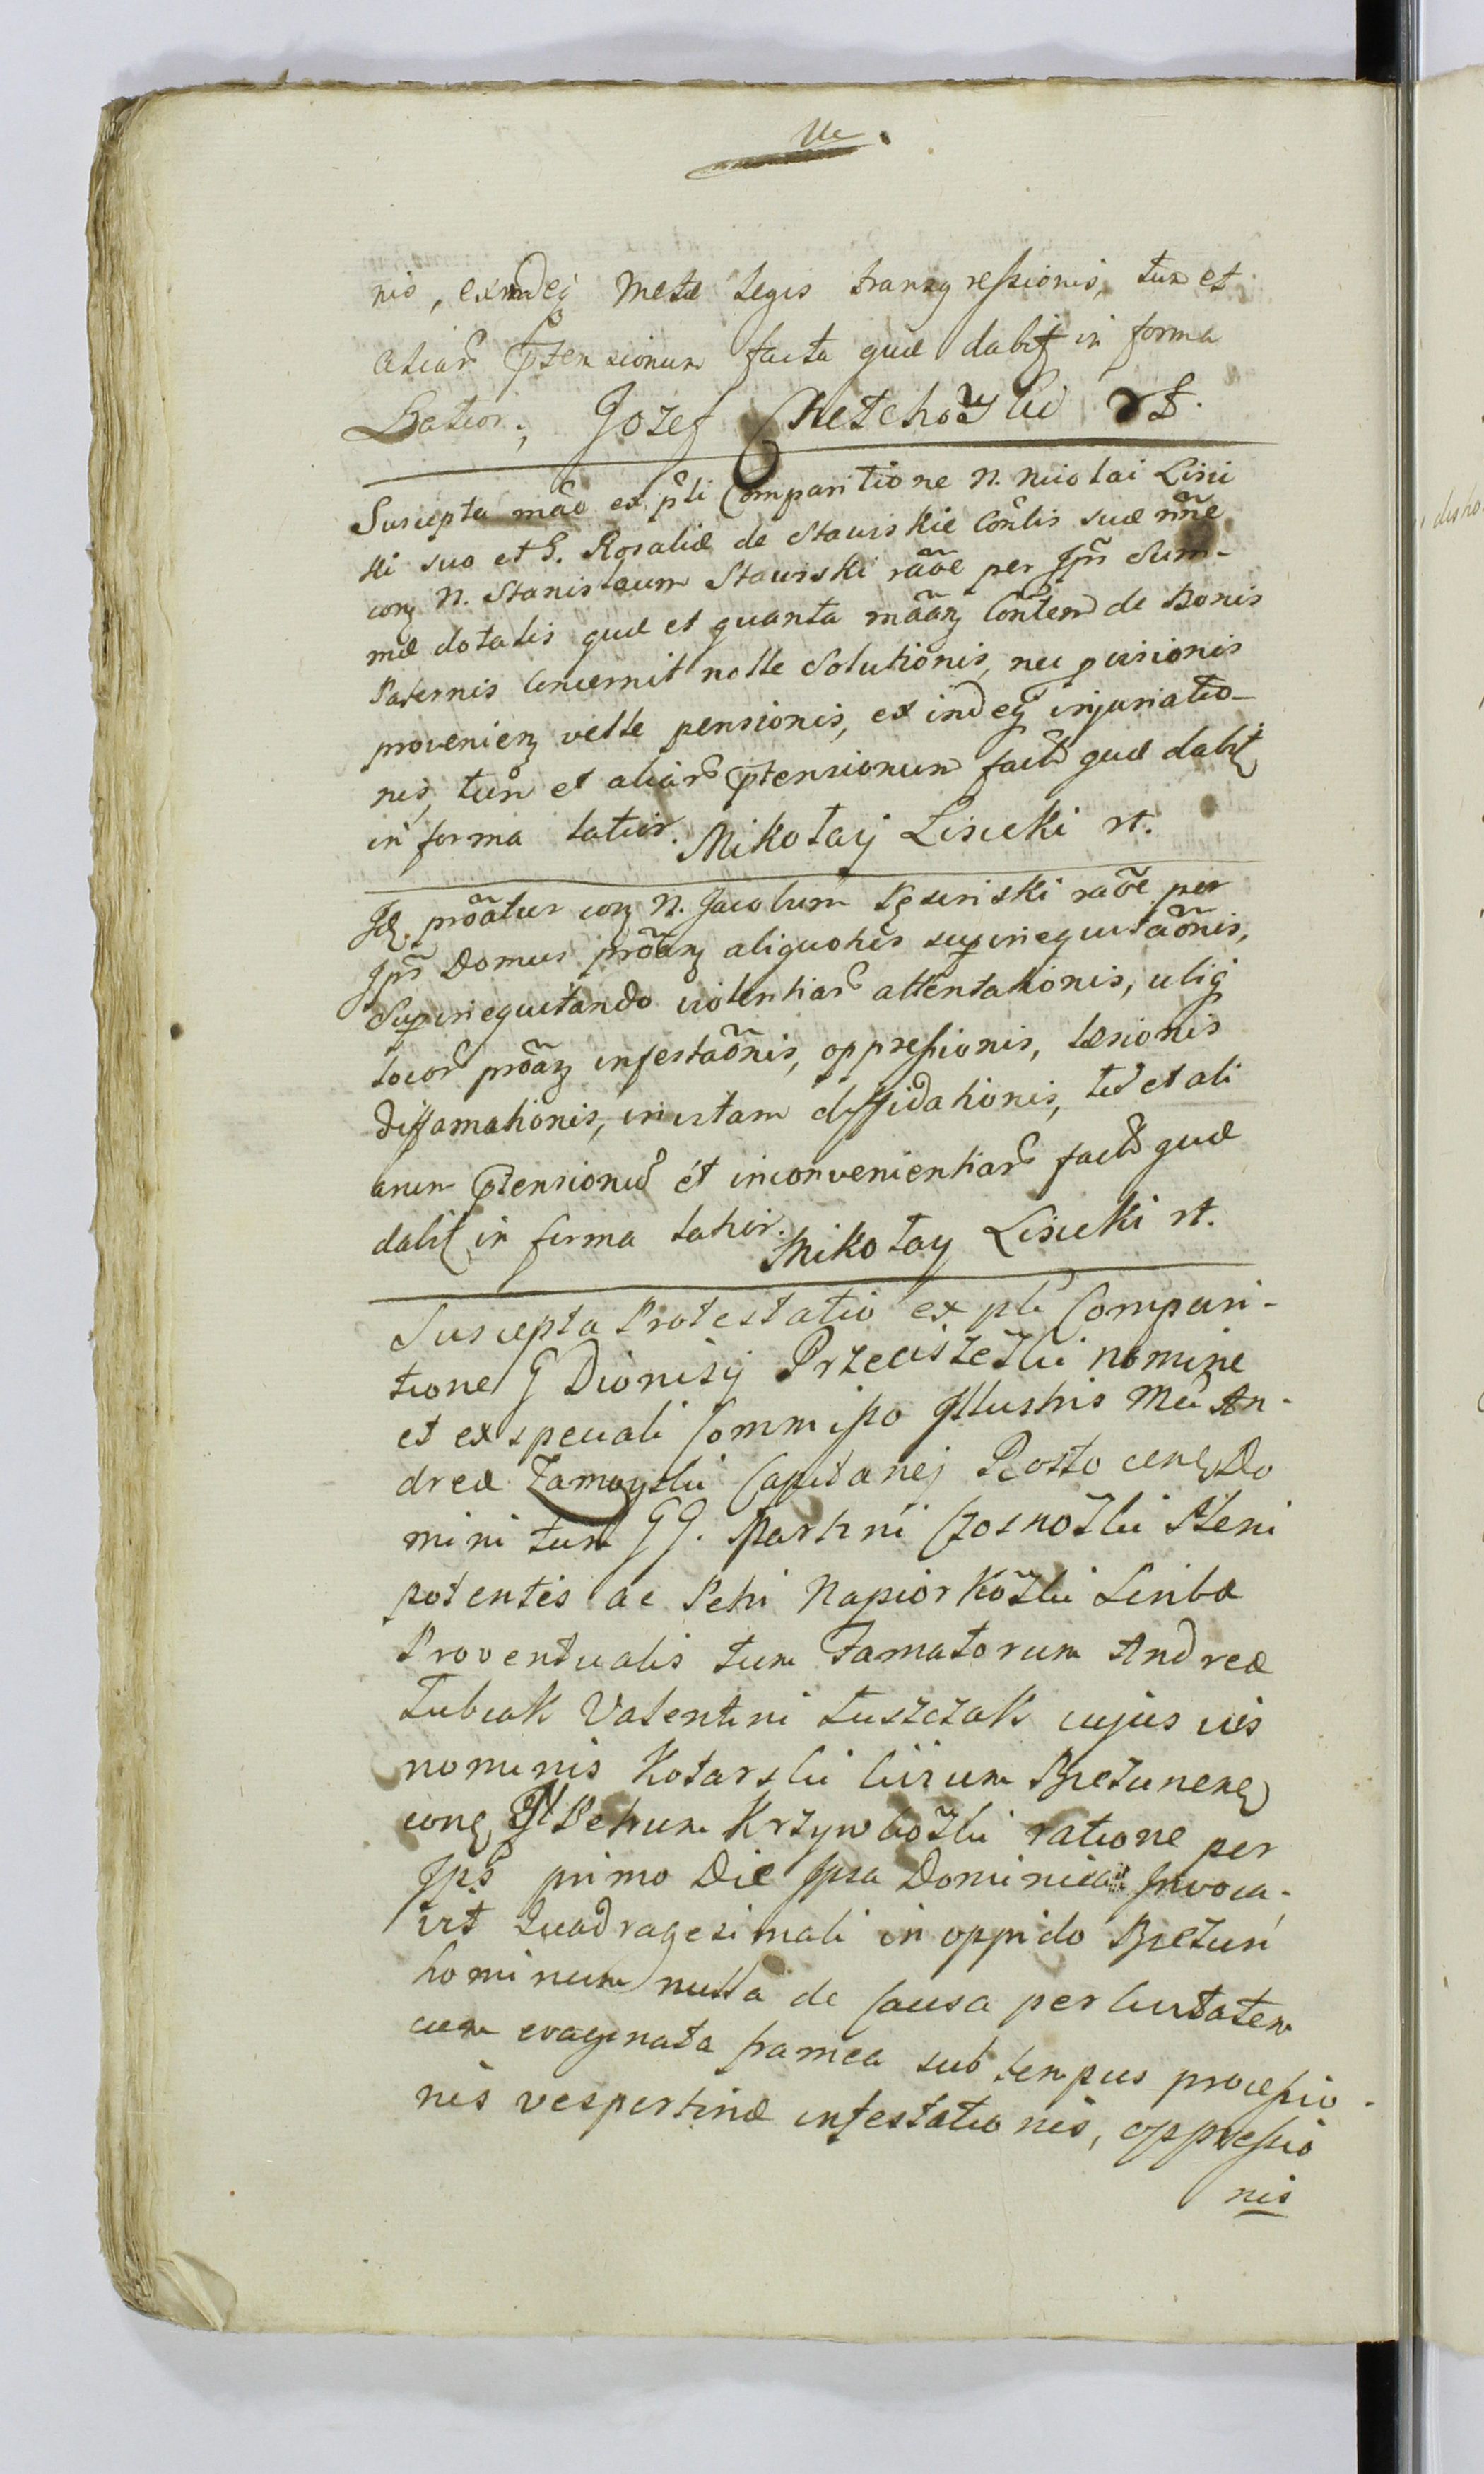 nis, exindeq Metæ Legis transgressionis, tum et
aliar Ptensionum facta quæ dabit in forma
Latior. Jozef Chełchowski rt.
Suscepta mãõ ex pli Comparitione N. Nicolai Lisic
ki suo et G. Rosaliæ de Stawiskie Cõnlis suæ nõne
conz N. Stanislaum Stawiski raõe per Jpm Sum-
mæ dotalis quæ et quanta mãanz Conten de Bonis
Paternis Concernit nolle Solutionis, nec
provenienz velle pensionis, ex indeq injuriatio-
nis, tum et aliar Ptensionum facta quæ dabit
in forma latior. Mikołay Lisicki rt.
Jd. proãtur conz N. Jacobum raõe per
Jpm Domus proãnz aliquoties superinequitaõnis,
Superinequitando violentiar attentationis, ubiq
locor proãnz infestaõnis, oppressionis, læsionis
diffamationis, in vitam diffidationis, tum et ali
arum Ptensionum et inconvenientiar facta quæ
dabit in forma latior. Mikołay Lisicki rt.
Suscepta Protestatio ex pli Compari-
tione G Dionisij Przeciszewski nomine
et ex speciali Commisso Illustris Mci An-
dreæ Zamoyski Capitanej Rosto cens Do
mini tum GG. Martini Czosnowski Pleni
potentis ac Petri Napiorkowski Scribæ
Proventualis tum Famatorum Andreæ
Łubiak Valentini Łuszczak cujus vis
nominis Kotarski Civium Brezunens
cons G Petrum Krzywkowski ratione per
Jps primo Die Ipsa Dominica Invoca-
vit Quadragesimali in oppido Brezun
hominum nulla de Causa per Civitatem
cum evaginata framea sub tempus processio-
nis vespertinæ infestationis, oppressio
nis